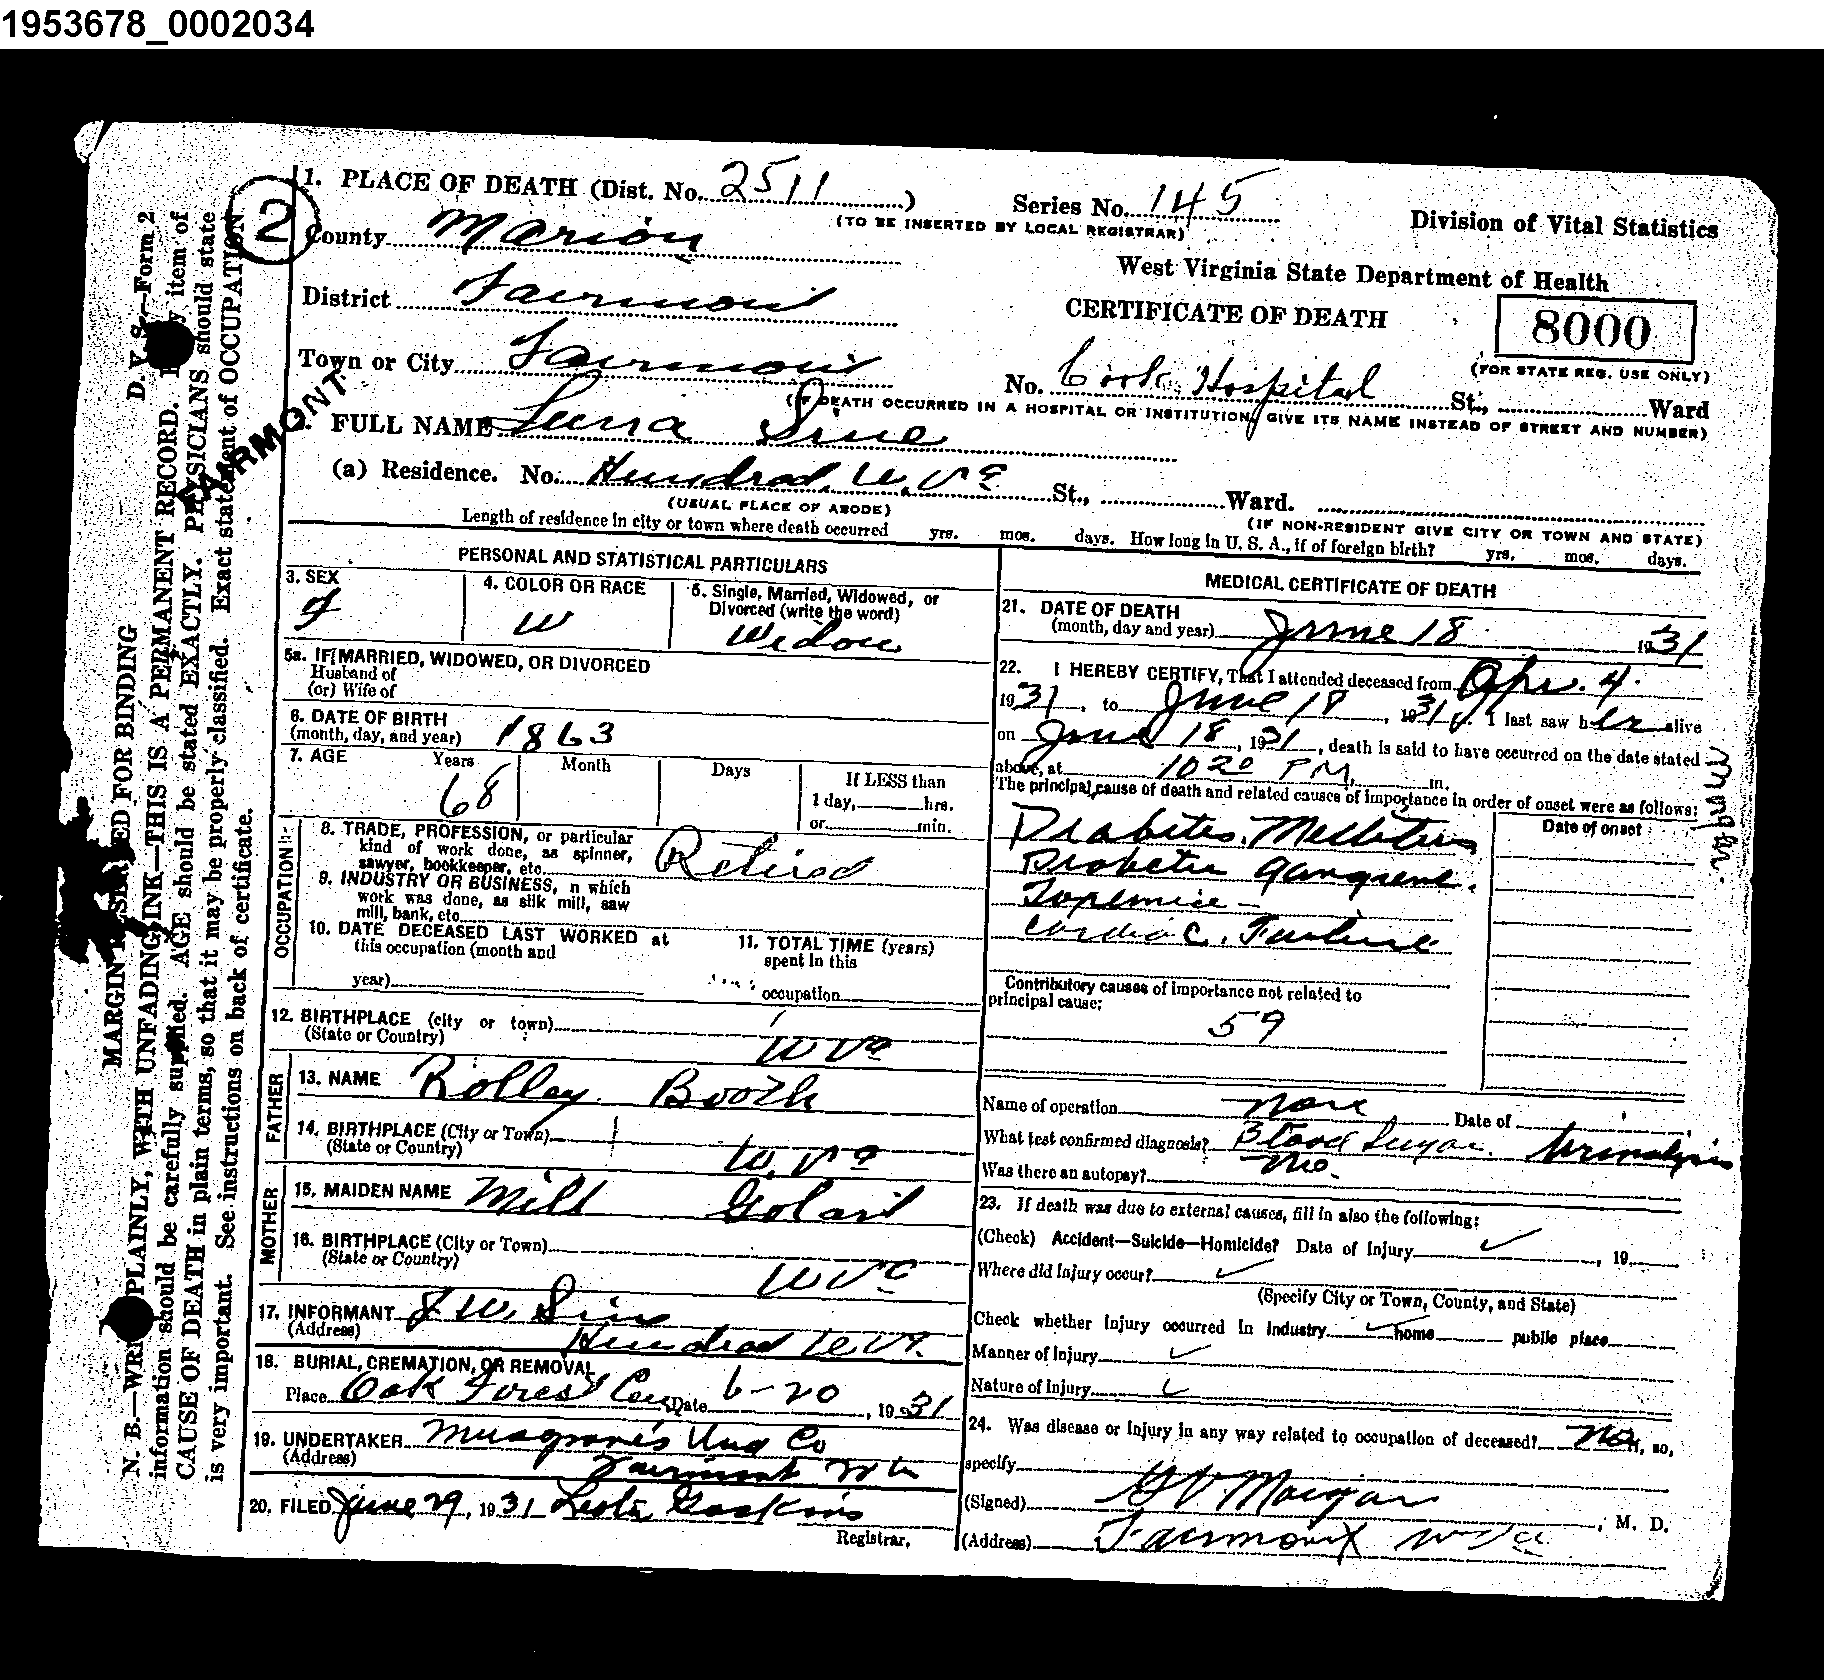 1953678_0002034
1. PLACE OF DEATH (Dist. No. 2511 )
Series No. 145
(TO BE INSERTED BY LOCAL REGISTRAR)
Division of Vital Statistics
2
County Marion
West Virginia State Department of Health
District Fairmont
CERTIFICATE OF DEATH
8000
(FOR STATE REG. USE ONLY)
Town or City Fairmont
No. Cook Hospital St., Ward
(IF DEATH OCCURRED IN A HOSPITAL OR INSTITUTION, GIVE ITS NAME INSTEAD OF STREET AND NUMBER)
FAIRMONT
FULL NAME Luna Sine
(a) Residence. No. Hundred, W. Va St., Ward.
(USUAL PLACE OF ABODE)
(IF NON-RESIDENT GIVE CITY OR TOWN AND STATE)
Length of residence in city or town where death occurred yrs. mos. days. How long in U. S. A., if of foreign birth? yrs. mos. days.
PERSONAL AND STATISTICAL PARTICULARS
3. SEX
f
4. COLOR OR RACE
W
5. Single, Married, Widowed, or
Divorced (write the word)
Widow
5a. IF MARRIED, WIDOWED, OR DIVORCED
Husband of
(or) Wife of
6. DATE OF BIRTH
(month, day, and year) 1863
7. AGE Years Month Days If LESS than
68
1 day, hrs.
or min.
OCCUPATION
8. TRADE, PROFESSION, or particular
kind of work done, as spinner,
sawyer, bookkeeper, etc. Retired
9. INDUSTRY OR BUSINESS, n which
work was done, as silk mill, saw
mill, bank, etc.
10. DATE DECEASED LAST WORKED at
this occupation (month and
year)
11. TOTAL TIME (years)
spent in this
occupation
12. BIRTHPLACE (city or town)
(State or Country) W Va
FATHER
13. NAME Rolley Booth
14. BIRTHPLACE (City or Town)
(State or Country) W. Va
MOTHER
15. MAIDEN NAME Milt
16. BIRTHPLACE (City or Town)
(State or Country) W Va
17. INFORMANT J W. Sine
(Address) Hundred W Va.
18. BURIAL, CREMATION, OR REMOVAL
Place Oak Forest Cem Date 6-20, 1931
19. UNDERTAKER Musgrave's Und Co
(Address) Fairmont W Va
20. FILED June 29, 1931
Registrar.
MEDICAL CERTIFICATE OF DEATH
21. DATE OF DEATH
(month, day and year) June 18 1931
22. I HEREBY CERTIFY, That I attended deceased from Apr. 4
1931, to June 18, 1931. I last saw her alive
on June 18, 1931, death is said to have occurred on the date stated
above, at 10 20 P M. m.
The principal cause of death and related causes of importance in order of onset were as follows:
Date of onset
Diabetes Mellitus
Diabetic gangrene.
Toxemia -
Cardiac Failure
Morgan.
Contributory causes of importance not related to
principal cause:
59
Name of operation None Date of
What test confirmed diagnosis? Blood Sugar. Urinalysis
Was there an autopsy? No.
23. If death was due to external causes, fill in also the following:
(Check) Accident—Suicide—Homicide? Date of Injury ✓, 19
Where did Injury occur? ✓
(Specify City or Town, County, and State)
Check whether Injury occurred in Industry ✓ home public place
Manner of Injury ✓
Nature of Injury ✓
24. Was disease or Injury in any way related to occupation of deceased? No. If, so,
specify
(Signed) Morgan, M. D.
(Address) Fairmont W Va
D. V. S.—Form 2
MARGIN RESERVED FOR BINDING
N. B.—WRITE PLAINLY, WITH UNFADING INK—THIS IS A PERMANENT RECORD. Every item of
information should be carefully supplied. AGE should be stated EXACTLY. PHYSICIANS should state
CAUSE OF DEATH in plain terms, so that it may be properly classified. Exact statement of OCCUPATION
is very important. See instructions on back of certificate.